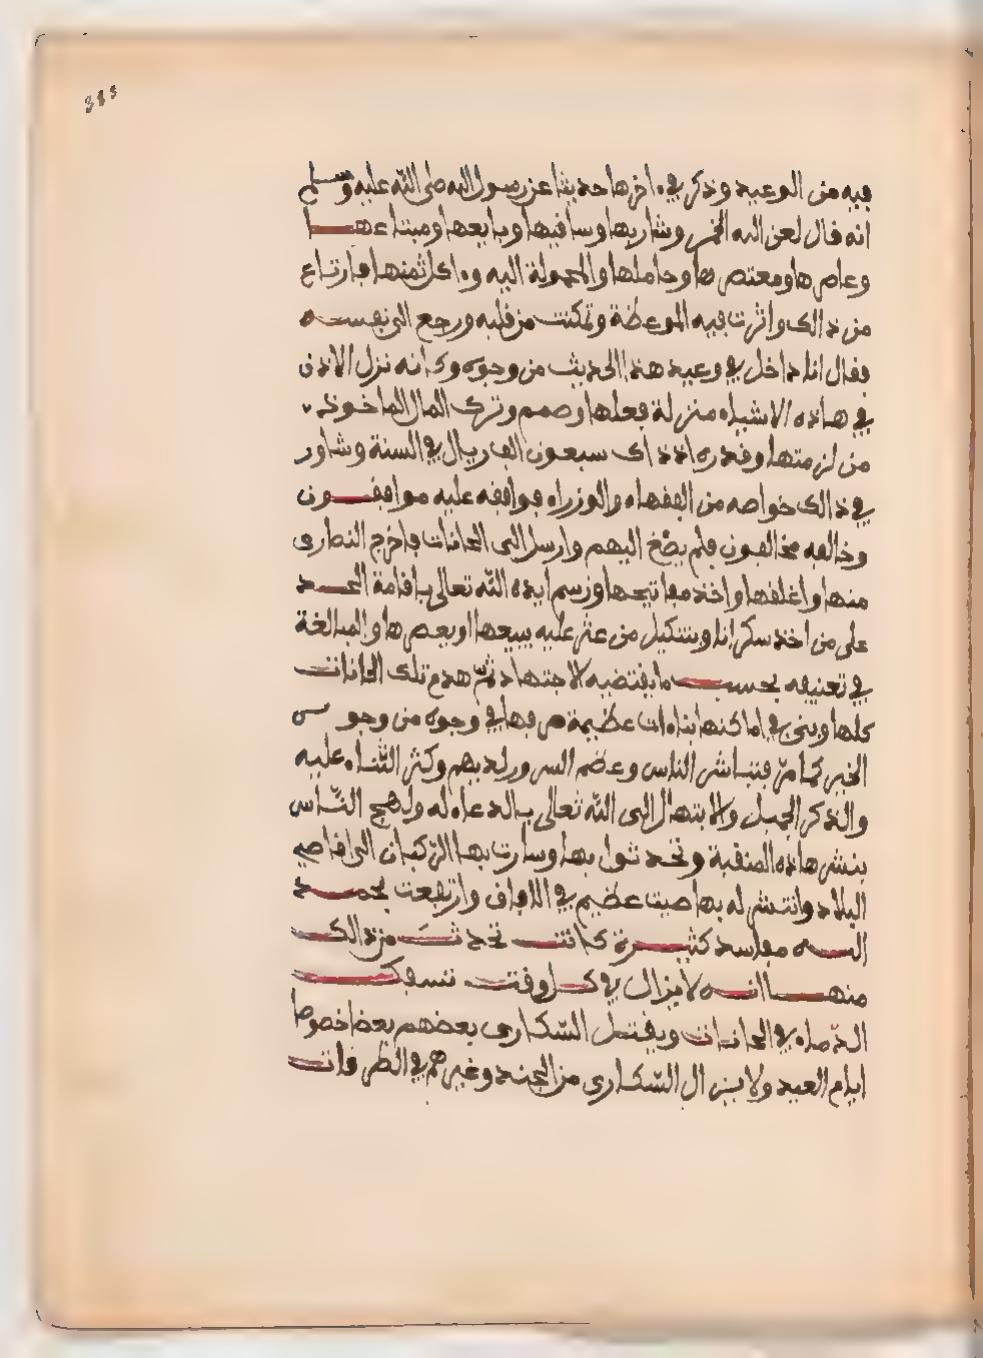 333
فيه من الوعيد وذكر في ءاخرها حديثا عن رسول الله صلى الله عليه وسلم
انه قال لعن الله الخمر وشاربها وساقيها وبايعها ومبتاعها
وعاصرها ومعتصرها وحاملها والمحمولة اليه وءاكل ثمنها فارتاع
من ذالك واثرت فيه الموعظة وتمكنت من قلبه ورجع الى نفسه
فقال انا داخل في وعيد هذا الحديث من وجوه وكانه نزل الاذن
في هاذه الاشياء منزلة فعلها وصمم وترك المال الماخوذ
من لزمتها وقدره اذذاك سبعون الف ريال في السنة وشاور
في ذالك خواصه من الفقهاء والوزراء فوافقه عليه موافقون
وخالفه مخالفون فلم يصغ اليهم وارسل الى الحانات فاخرج النصارى
منها واغلقها واخذ مفاتيحها ورسم ايده الله تعالى باقامة الحد
على من اخذ سكرانا وبتنكيل من عثر عليه يبيعها او يعصرها والمبالغة
في تعنيفه بحسب ما يقتضيه لاجتهاد ثم هدم تلك الحانات
كلها وبنى في اماكنها بناءات عظيمة صرفها في وجوه من وجوه
الخير كما مر فتباشر الناس وعظم السرور لديهم وكثر الثناء عليه
والذكر الجميل ولابتهال الى الله تعالى بالدعاء له ولهج النّاس
بنشر هاذه المنقبة وتحدثوا بها وسارت بها الركبان الى اقاصي
البلاد وانتشر له بها صيت عظيم في الافاق وارتفعت بحمد
الله مفاسد كثيرة كانت تحدث من ذالك
منها انه لا يزال في كل وقت تسفك
الدماء في الحانات ويقتل السّكارى بعضهم بعضا خصوصا
ايام العيد ولا يزال السّكارى من الجند وغيرهم في الطرقات